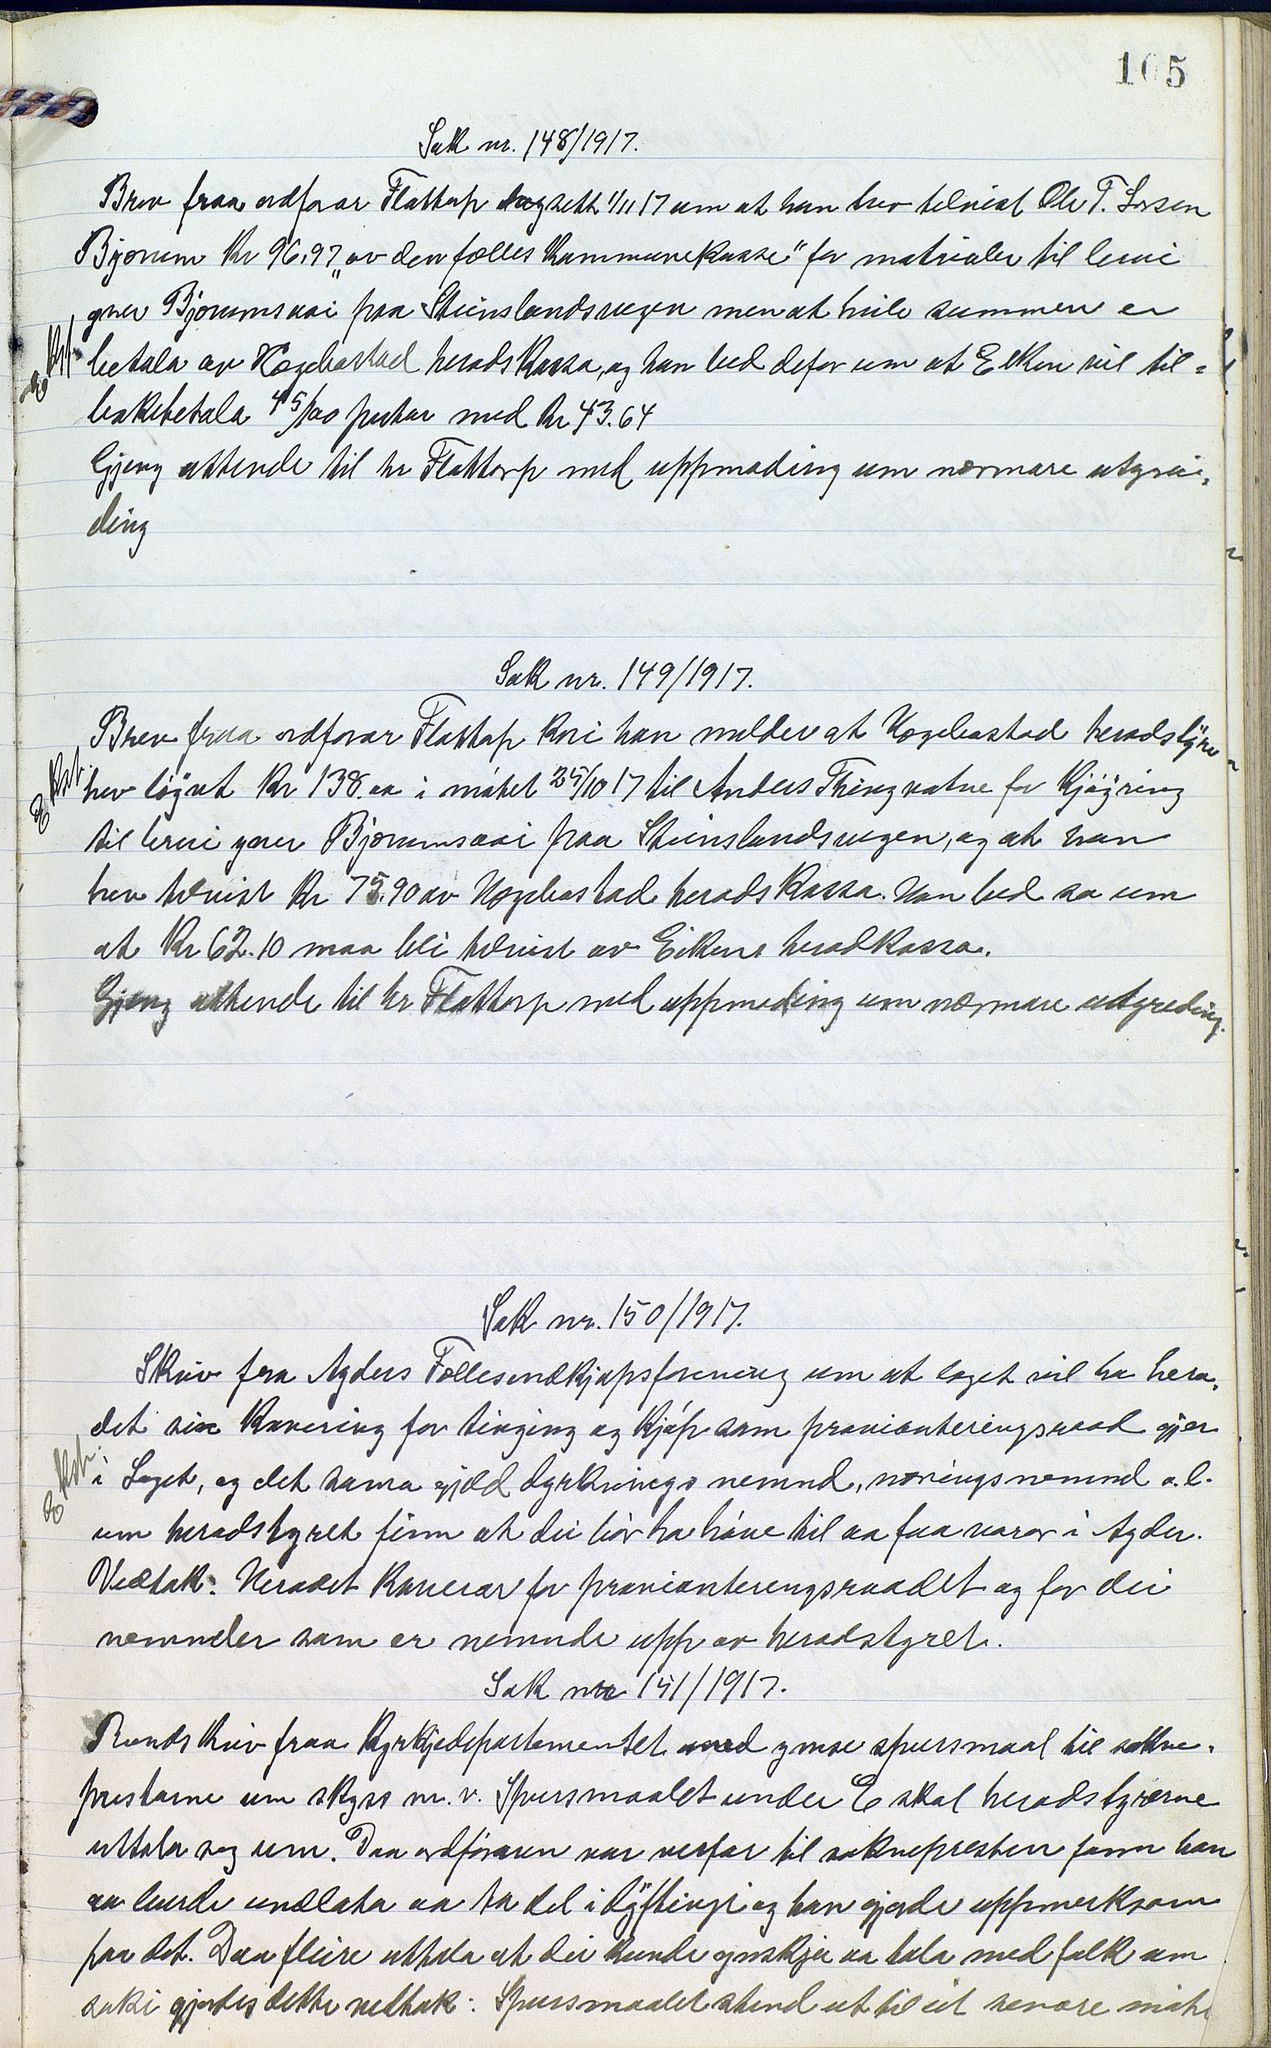 105
Sak nr. 148/1917.
Brev fraa ordforar Flottorp dagsett 1/11 17 um at han hev tilvist Ole T. Larsen
Bjorum Kr 96,97 "av den fælles Kommunekasse" for matrialer til brui
yver Bjorumsaai paa Steinslandsvegen men at heile summen er
betala av Hægebostad heradskassa, og han bed defor um at Eiken vil til=
bakebetala 45/100 partar med Kr 43.64
Gjeng attende til hr Flottorp med uppmoding um nærmare utgrei-
ding
E Rst.
Sak nr. 149/1917.
Brev fraa ordforar Flottorp kori han melder at Hægebostad heradstyre
hev løyvt Kr 138.00 i møtet 25/10 17 til Anders Thingvatne for kjøyring
til brui yver Bjorumsaai paa Steinslandsvegen, og at han
hev tilvist Kr 75.90 av Hægebostad heradskassa. Han bed so um
at Kr 62.10 maa bli tilvist av Eikens heradkassa.
Gjeng attende til hr Flottorp med uppmoding um nærmare utgreding.
E Rst.
Sak nr. 150/1917.
Skriv fra Agders Fællesindkjøpsforening um at laget vil ha hera-
det sin kavering for tinging og kjøp som provianteringsraad gjer
i Laget, og det sama gjeld dyrknings nemnd, næringsnemnd o.l.
um heradstyret finn at dei bør ha høve til aa faa varor i Agder.
Vedtak: Heradet kaverar for provianteringsraadet og for dei
nemnder som er nemnde upp av heradstyret.
E Rst.
Sak nr 151/1917.
Rundskriv fraa Kyrkjedepartementet med ymse spursmaal til sokne-
prestarne um skyss m.v. Spursmaalet under E skal heradstyrerne
uttala seg um. Daa ordføraren var verfar til soknepresten fann han
aa burde undlata aa ta del i dryftingi og han gjorde uppmerksam
paa det. Daa fleire uttala at dei kunde ynskje aa tala med folk um
saki gjordes dette vedtak: Spursmaalet stend ut til eit senare møte